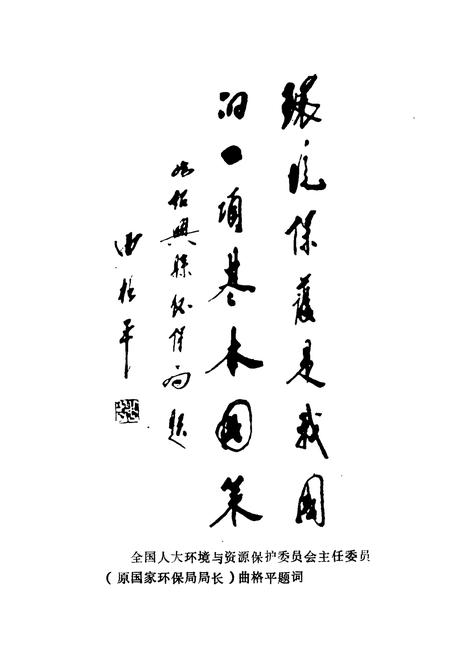 環境保護是我國
的一项基本國策
为绍興縣环保局題
曲格平
全国人大环境与资源保护委员会主任委员
（原国家环保局局长）曲格平题词